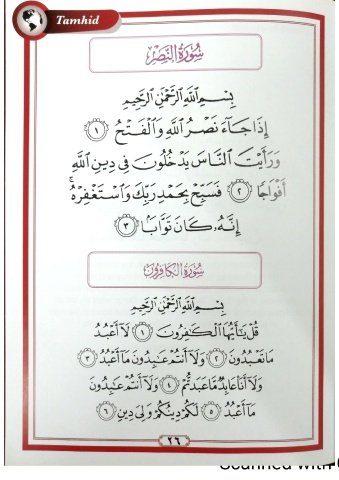 Tamhid
سُورَةُ النَّصْرِ
بِسْمِ اللَّهِ الرَّحْمَٰنِ الرَّحِيمِ
إِذَا جَاءَ نَصْرُ اللَّهِ وَالْفَتْحُ ١
وَرَأَيْتَ النَّاسَ يَدْخُلُونَ فِي دِينِ اللَّهِ
أَفْوَاجًا ٢ فَسَبِّحْ بِحَمْدِ رَبِّكَ وَاسْتَغْفِرْهُ ۚ
إِنَّهُ كَانَ تَوَّابًا ٣
سُورَةُ الْكَافِرُونَ
بِسْمِ اللَّهِ الرَّحْمَٰنِ الرَّحِيمِ
قُلْ يَٰٓأَيُّهَا الْكَٰفِرُونَ ١ لَآ أَعْبُدُ
مَا تَعْبُدُونَ ٢ وَلَآ أَنتُمْ عَٰبِدُونَ مَآ أَعْبُدُ ٣
وَلَآ أَنَا۠ عَابِدٌ مَّا عَبَدتُّمْ ٤ وَلَآ أَنتُمْ عَٰبِدُونَ
مَآ أَعْبُدُ ٥ لَكُمْ دِينُكُمْ وَلِيَ دِينِ ٦
٢٦
Scanned with